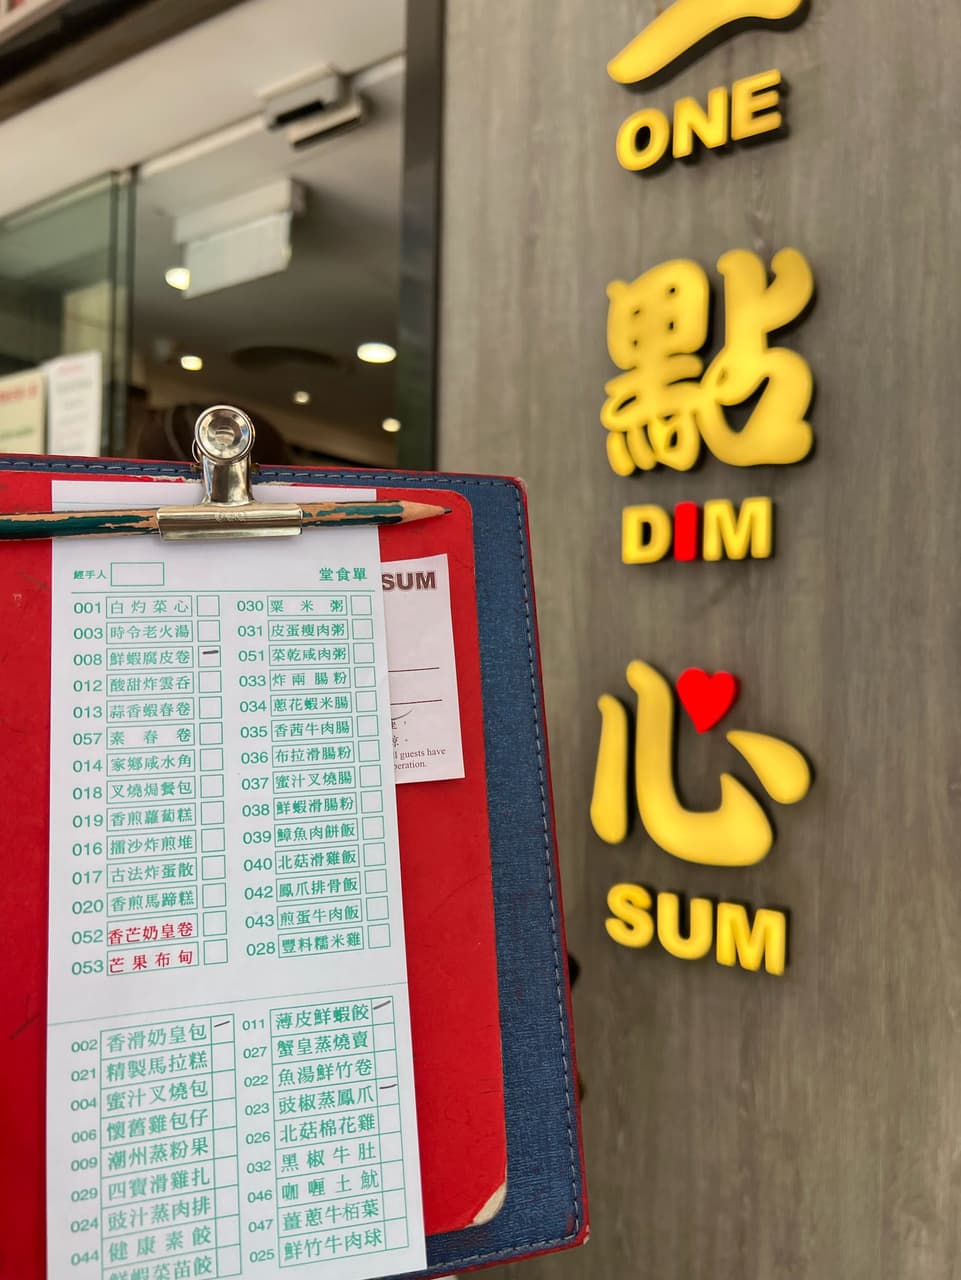 一
ONE
點
DIM
心
SUM
SUM
l guests have
peration.
經手人
堂食單
001 白灼菜心
003 時令老火湯
008 鮮蝦腐皮卷
012 酸甜炸雲吞
013 蒜香蝦春卷
057 素春卷
014 家鄉咸水角
018 叉燒焗餐包
019 香煎蘿蔔糕
016 擂沙炸煎堆
017 古法炸蛋散
020 香煎馬蹄糕
052 香芒奶皇卷
053 芒果布甸
030 粟米粥
031 皮蛋瘦肉粥
051 菜乾咸肉粥
033 炸兩腸粉
034 蔥花蝦米腸
035 香茜牛肉腸
036 布拉滑腸粉
037 蜜汁叉燒腸
038 鮮蝦滑腸粉
039 鱆魚肉餅飯
040 北菇滑雞飯
042 鳳爪排骨飯
043 煎蛋牛肉飯
028 豐料糯米雞
002 香滑奶皇包
021 精製馬拉糕
004 蜜汁叉燒包
006 懷舊雞包仔
009 潮州蒸粉果
029 四寶滑雞扎
024 豉汁蒸肉排
044 健康素餃
鮮蝦菜苗餃
011 薄皮鮮蝦餃
027 蟹皇蒸燒賣
022 魚湯鮮竹卷
023 豉椒蒸鳳爪
026 北菇棉花雞
032 黑椒牛肚
046 咖喱土魷
047 薑蔥牛栢葉
025 鮮竹牛肉球